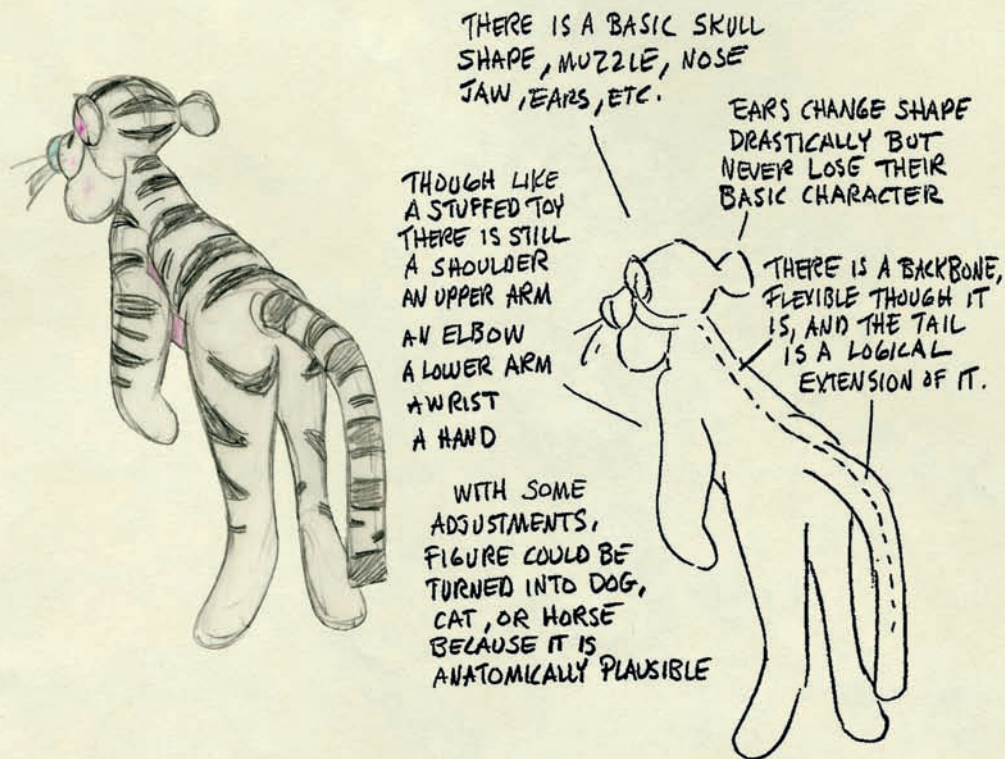 THERE IS A BASIC SKULL
SHAPE, MUZZLE, NOSE
JAW, EARS, ETC.
EARS CHANGE SHAPE
DRASTICALLY BUT
NEVER LOSE THEIR
BASIC CHARACTER
THOUGH LIKE
A STUFFED TOY
THERE IS STILL
A SHOULDER
AN UPPER ARM
AN ELBOW
A LOWER ARM
A WRIST
A HAND
THERE IS A BACKBONE,
FLEXIBLE THOUGH IT
IS, AND THE TAIL
IS A LOGICAL
EXTENSION OF IT.
WITH SOME
ADJUSTMENTS,
FIGURE COULD BE
TURNED INTO DOG,
CAT, OR HORSE
BECAUSE IT IS
ANATOMICALLY PLAUSIBLE